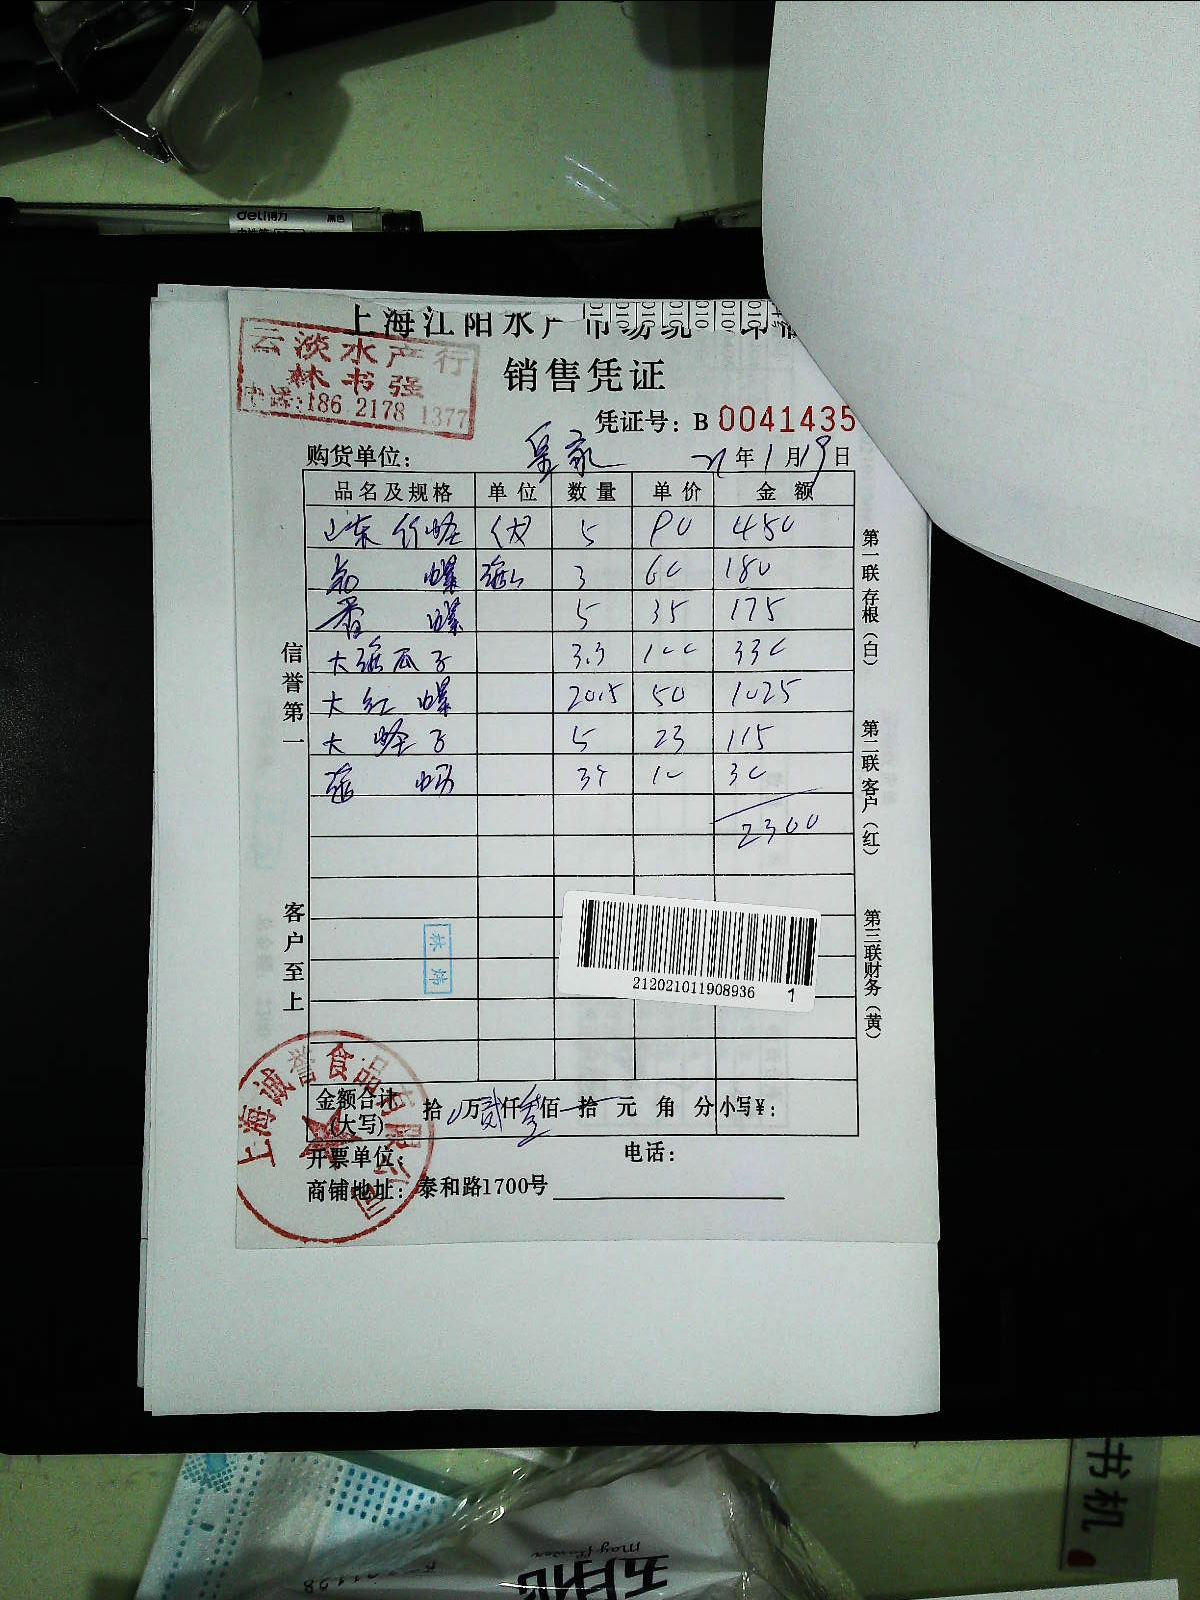 deli得力
黑色
上海江阳水产市场统
云淡水产行
林书强
电话:186 2178 1377
销售凭证
凭证号：B 0041435
购货单位：
21年1月19日
品名及规格 单位 数量 单价 金额
山东竹蛏 5 90 450
螺 3 60 180
香螺 5 35 175
大海瓜子 3.3 100 330
大红螺 20.5 50 1025
大蛏子 5 23 115
3 10 30
2300
信誉第一
客户至上
第一联存根（白）
第二联客户（红）
第三联财务（黄）
212021011908936 1
上海诚誉食品有限公司
金额合计(大写) 拾 万贰仟叁佰 拾 元 角 分 小写¥：
开票单位： 电话：
商铺地址：泰和路1700号
书机
五月花
May Flower